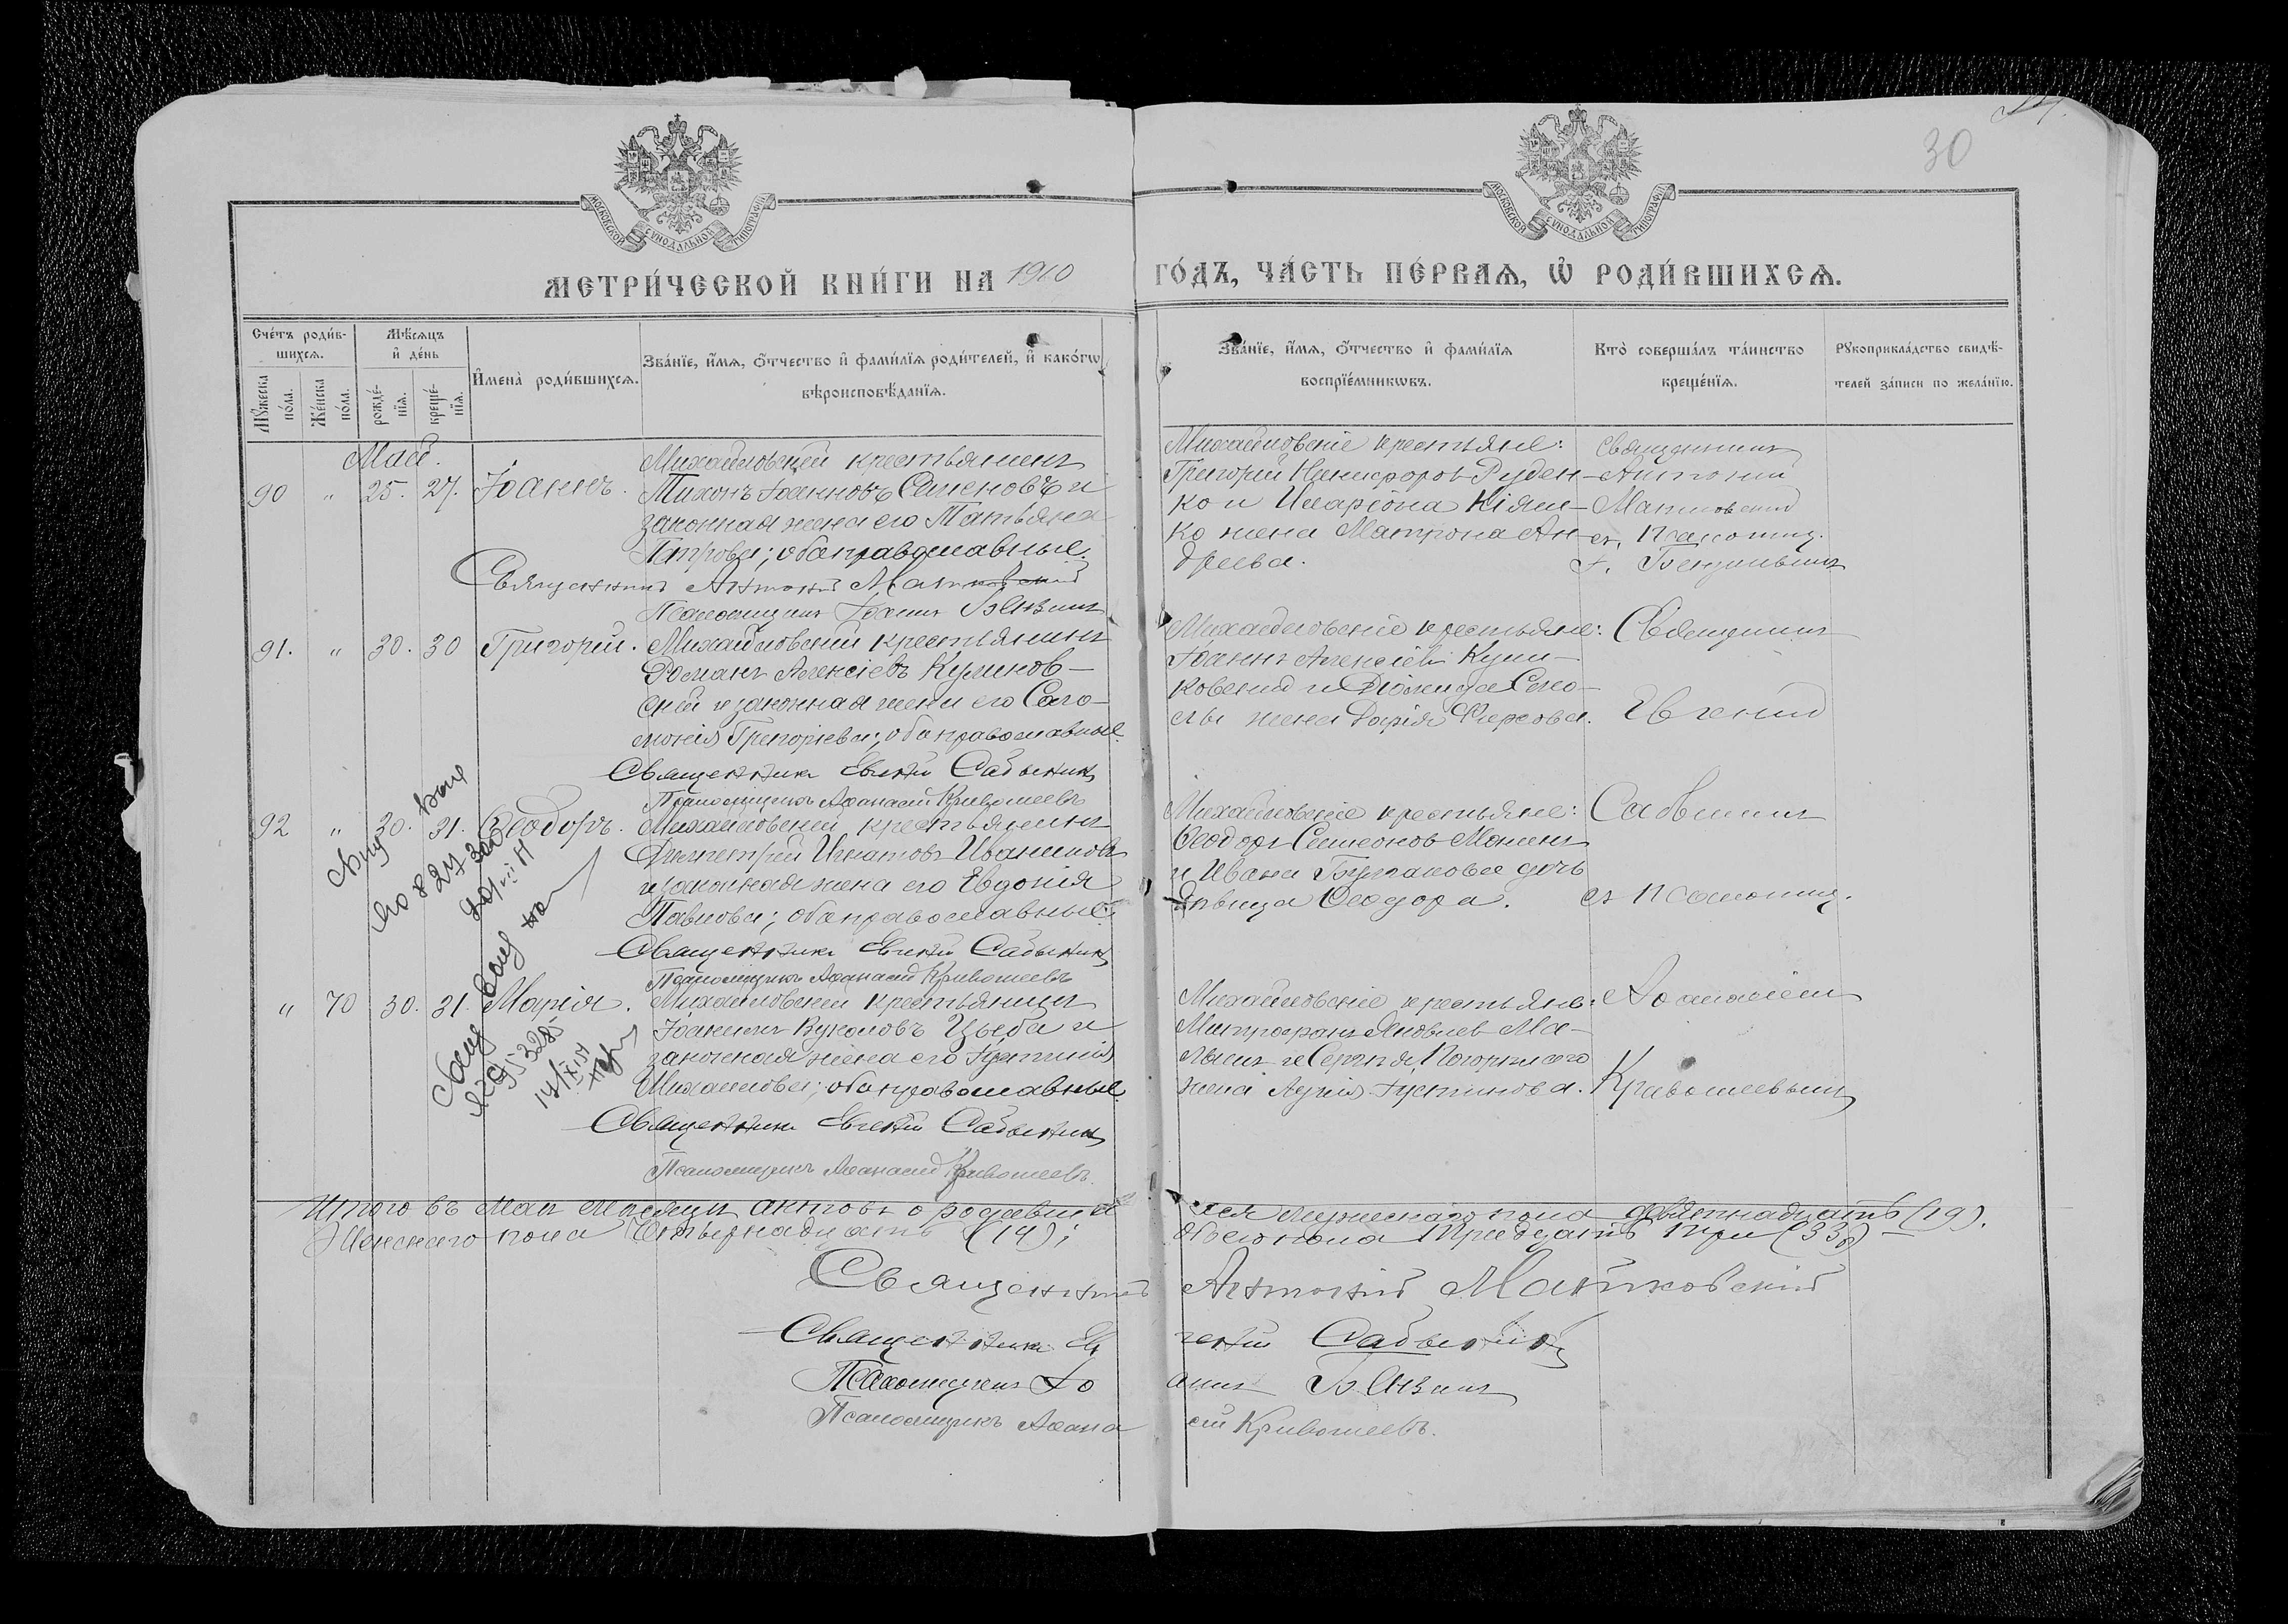 30
МОСКОВСКОЙ СУНОДАЛЬНОЙ ТИПОГРАФІИ
МОСКОВСКОЙ СУНОДАЛЬНОЙ ТИПОГРАФІИ
МЕТРИ́ЧЕСКОЙ КНИ́ГИ НА 1910
ГО́ДЪ, ЧА́СТЬ ПЕ́РВАѦ, Ѡ҆ РОДИ́ВШИХСѦ.
Сче́тъ роди́в-
шихсѧ.
Мꙋ́жеска по́ла.
Же́нска по́ла.
Мѣ́сѧцъ
и҆ де́нь
рожде́-
нїѧ.
креще́-
нїѧ.
И҆мена̀ роди́вшихсѧ.
Зва́нїе, и҆́мѧ, ѻ҆́тчество и҆ фами́лїѧ роди́телей, и҆ како́гѡ
вѣроисповѣ́данїѧ.
Зва́нїе, и҆́мѧ, ѻ҆́тчество и҆ фами́лїѧ
воспрїе́мникѡвъ.
Кто̀ соверша́лъ та́инство
креще́нїѧ.
Рꙋкоприкла́дство свидѣ́-
телей за́писи по жела́нїю.
Май.
90 " 25. 27. Іоаннъ.
Михайловскій крестьянинъ
Тихонъ Іоанновъ Семеновъ и
законная жена его Татьяна
Петрова; оба православные.
Священникъ Антоній Матковский
Псаломщикъ Іоаннъ Бензинъ
Михайловскіе крестьяне:
Григорій Никифоровъ Руден-
ко и Иларіона Кіяш-
ко жена Матрона Ан-
дреева.
Священникъ
Антоній
Матковский
съ псаломщ.
І. Бензинымъ
91. " 30. 30 Григорій.
Михайловскій крестьянинъ
Романъ Алексіевъ Куликов-
скій и законная жена его Соло-
монія Григорьева; оба православные.
Священникъ Евгеній Савыникъ
Псаломщикъ Аѳанасій Кривошеевъ
Михайловскіе крестьяне:
Іоаннъ Алексіевъ Кули-
ковский и Діомида Само-
жена Дарія Фирсова.
Священникъ
Евгений
92 " 30. 31. Ѳеодоръ.
Михайловский крестьянинъ
Димитрій Игнатовъ Иваниковъ
и законная жена его Евдокія
Павлова; оба православные.
Священникъ Евгеній Савыникъ
Псаломщикъ Аѳанасій Кривошеевъ
Михайловскіе крестьяне:
Ѳеодоръ Симеоновъ
и Ивана Булгакова дочь
дѣвица Ѳеодора.
съ псаломщ.
" 70 30. 31. Марія.
Михайловскій крестьянинъ
Іоакимъ Вуколовъ Цыба и
законная жена его Іустинія
Михайлова; оба православные.
Священникъ Евгеній Савыникъ
Псаломщикъ Аѳанасій Кривошеевъ.
Михайловскіе крестьяне:
Митрофанъ Яковлевъ Ма-
и Сергія
жена Іустинова.
Аѳанасіемъ
Кривошеевымъ
Итого въ Маѣ мѣсяцѣ актовъ о родивших
ся мужескаго пола девятнадцать (19).
Женскаго пола четырнадцать (14);
обоего пола тридцать три (33)
Священникъ Антоній Матковский
Священникъ Евгеній Савыникъ
Псаломщикъ Іоаннъ Бензинъ
Псаломщикъ Аѳанасій Кривошеевъ.